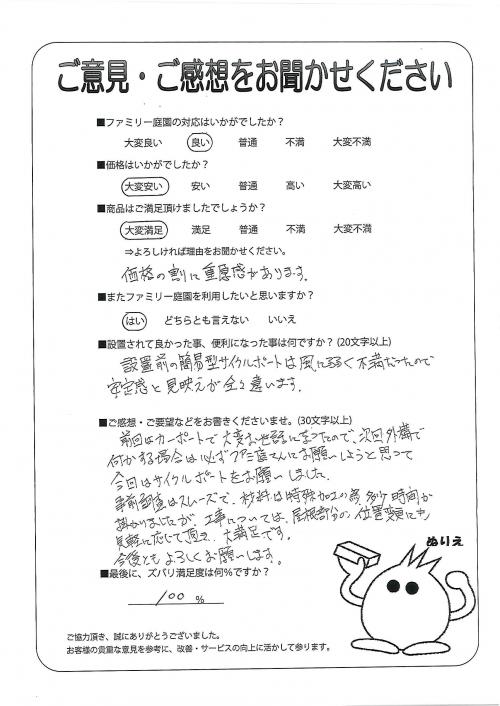 ご意見・ご感想をお聞かせください
■ファミリー庭園の対応はいかがでしたか?
大変良い 良い 普通 不満 大変不満
■価格はいかがでしたか?
大変安い 安い 普通 高い 大変高い
■商品はご満足頂けましたでしょうか?
大変満足 満足 普通 不満 大変不満
⇒よろしければ理由をお聞かせください。
価格の割に重厚感があります。
■またファミリー庭園を利用したいと思いますか?
はい どちらとも言えない いいえ
■設置されて良かった事、便利になった事は何ですか?(20文字以上)
設置前の簡易型サイクルポートは風に弱く不満だったので
安定感と見映えが全々違います。
■ご感想・ご要望などをお書きくださいませ。(30文字以上)
前回はカーポートで大変お世話になったので、次回外構で
何かする場合は必ずファミ庭さんにお願いしようと思って
今回はサイクルポートをお願いしました。
事前調査はスムーズで、材料は特殊加工の為、多少時間が
掛かりましたが、工事については、屋根部分の位置変更にも
気軽に応じて頂き、大満足です。
今後ともよろしくお願いします。
■最後に、ズバリ満足度は何%ですか?
100 %
ぬりえ
ご協力頂き、誠にありがとうございました。
お客様の貴重な意見を参考に、改善・サービスの向上に活かして参ります。